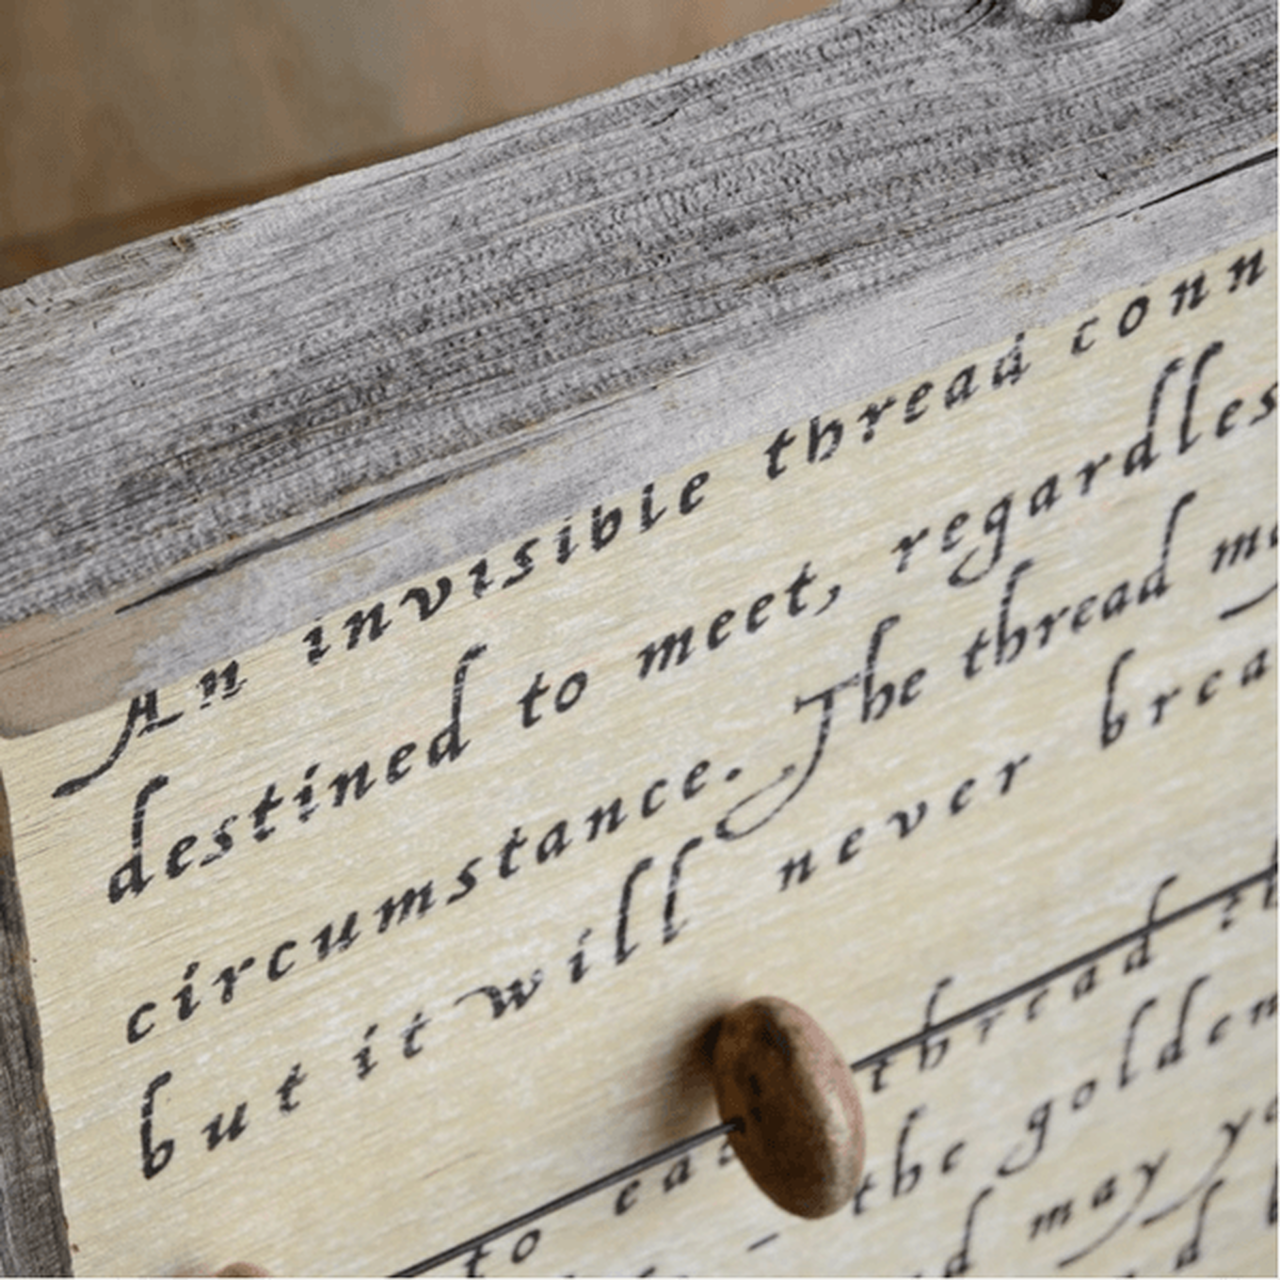 An invisible thread conn
destined to meet, regardles
circumstance. The thread ma
but it will never brea
to ea thread th
the golden
d may yo
d